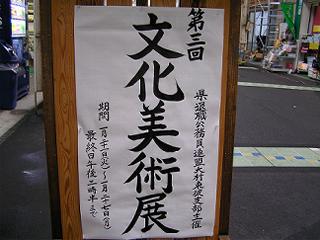 第三回
文化美術展
県退職公務員連盟大村東彼支部主催
期間 一月二十一日(火)~一月二十七日(月)
最終日午後三時半まで